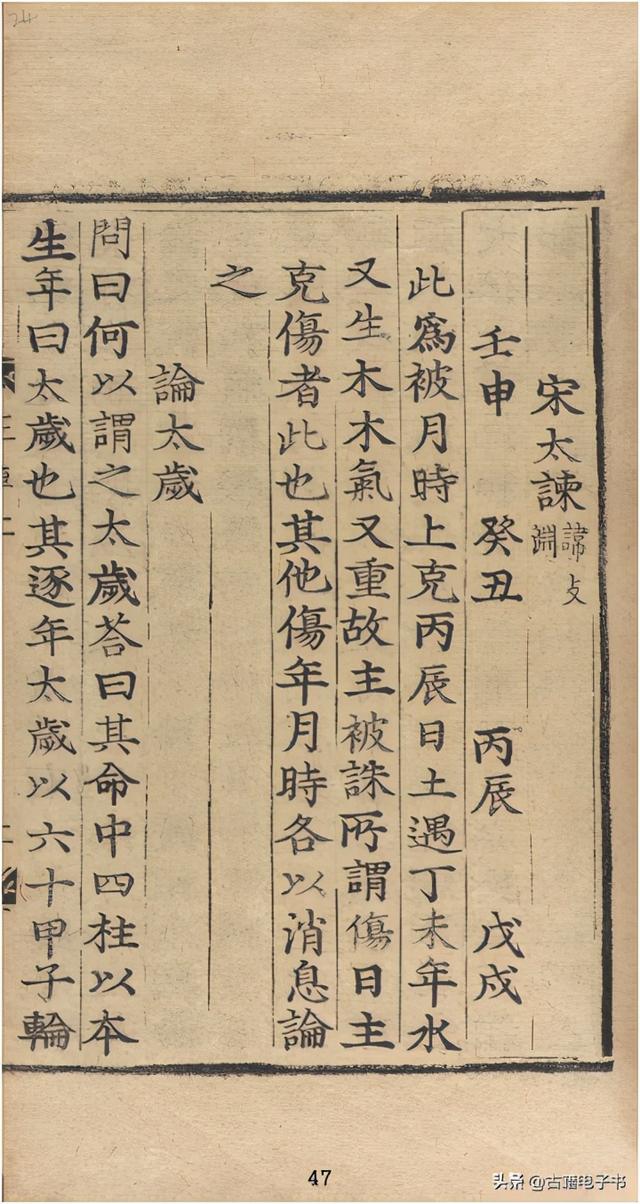 宋太諫諱友淵
壬申 癸丑 丙辰 戊戌
此爲被月時上克丙辰日土遇丁未年水
又生木木氣又重故主被誅所謂傷日主
克傷者此也其他傷年月時各以消息論
之
論太歲
問曰何以謂之太歲荅曰其命中四柱以本
生年曰太歲也其逐年太歲以六十甲子輪
47
头条 @古籍电子书